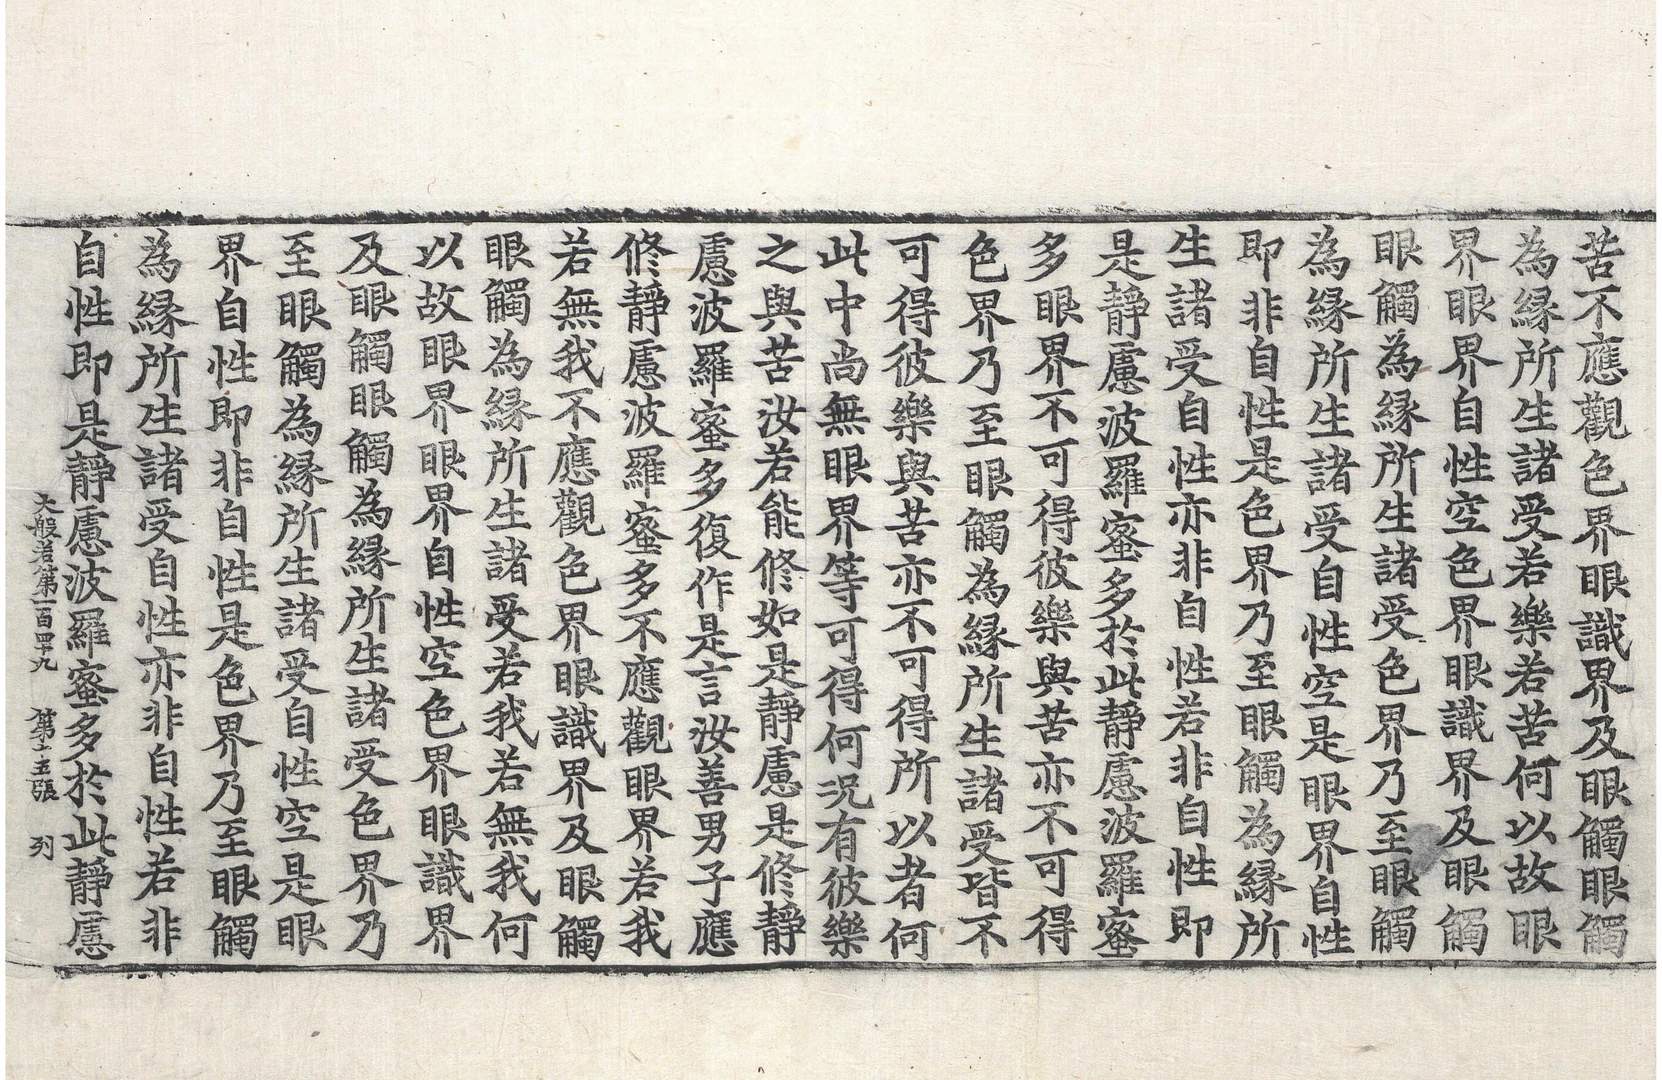 苦不應觀色界眼識界及眼觸眼觸
為縁所生諸受若樂若苦何以故眼
界眼界自性空色界眼識界及眼觸
眼觸為縁所生諸受色界乃至眼觸
為縁所生諸受自性空是眼界自性
即非自性是色界乃至眼觸為縁所
生諸受自性亦非自性若非自性即
是靜慮波羅蜜多於此靜慮波羅蜜
多眼界不可得彼樂與苦亦不可得
色界乃至眼觸為縁所生諸受皆不
可得彼樂與苦亦不可得所以者何
此中尚無眼界等可得何況有彼樂
之與苦汝若能修如是靜慮是修靜
慮波羅蜜多復作是言汝善男子應
修靜慮波羅蜜多不應觀眼界若我
若無我不應觀色界眼識界及眼觸
眼觸為縁所生諸受若我若無我何
以故眼界眼界自性空色界眼識界
及眼觸眼觸為縁所生諸受色界乃
至眼觸為縁所生諸受自性空是眼
界自性即非自性是色界乃至眼觸
為縁所生諸受自性亦非自性若非
自性即是靜慮波羅蜜多於此靜慮
大般若第一百四十九 第十五張 列